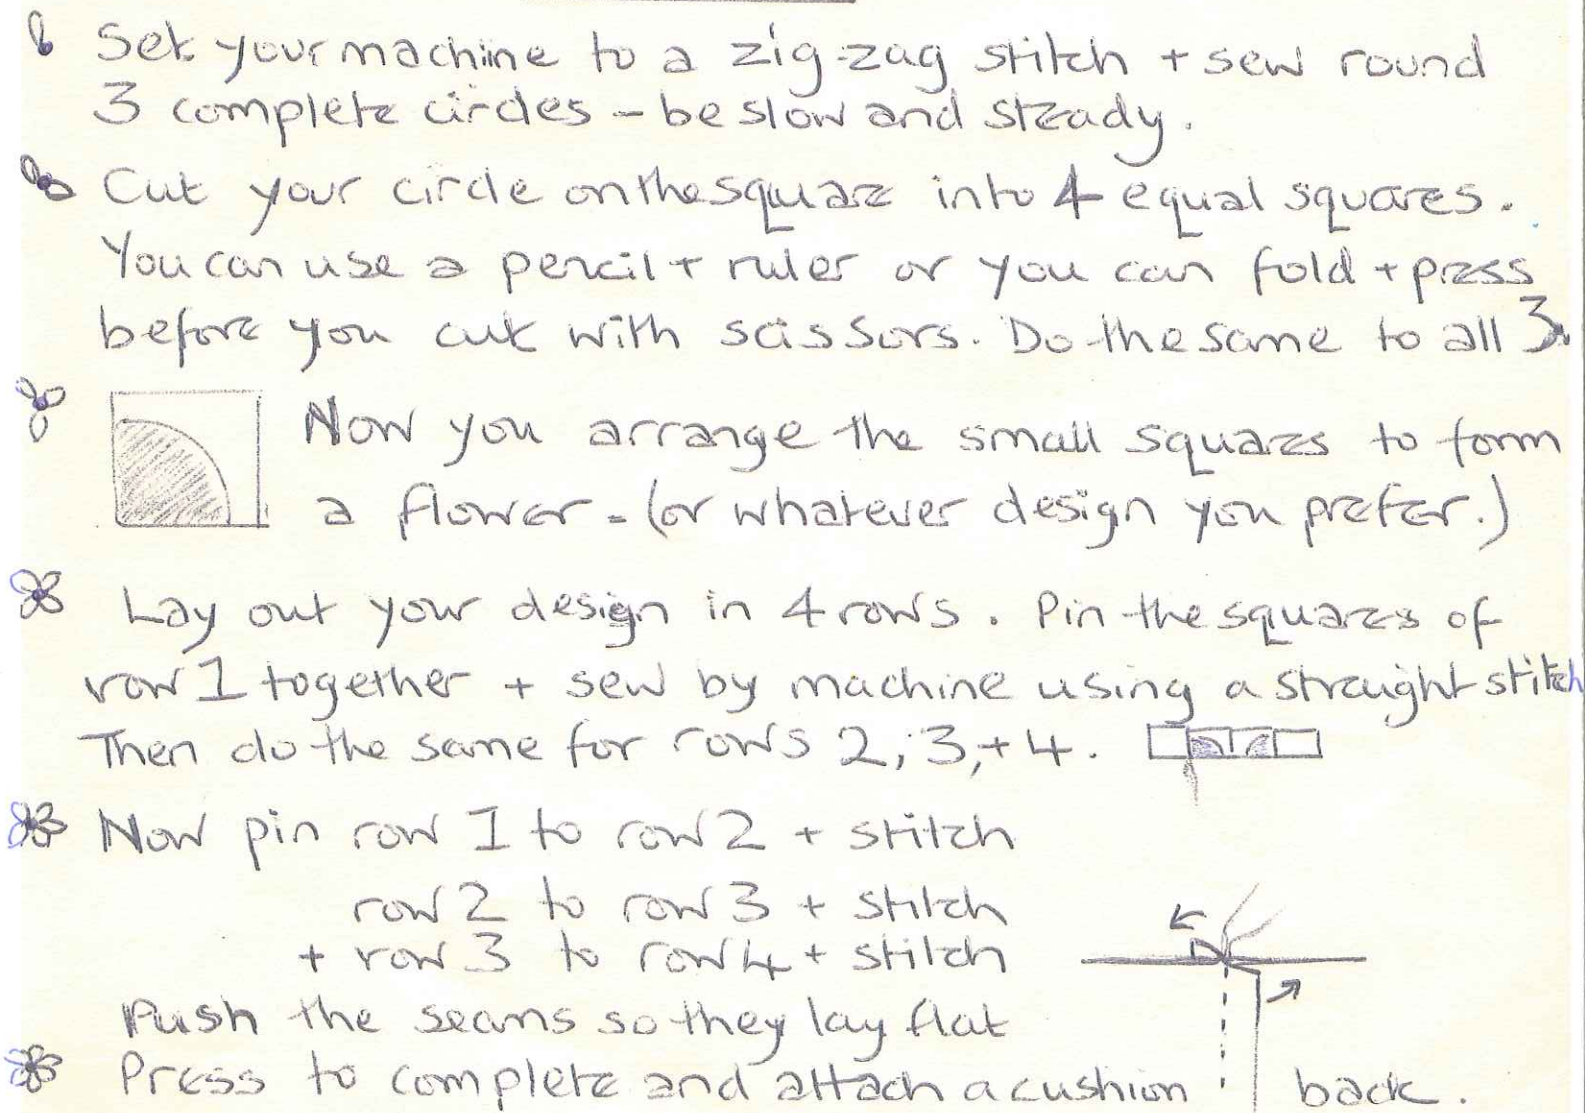 Set your machine to a zig-zag stitch + sew round
3 complete circles - be slow and steady.
Cut your circle on the square into 4 equal squares.
You can use a pencil + ruler or you can fold + press
before you cut with scissors. Do the same to all 3.
Now you arrange the small squares to form
a flower - (or whatever design you prefer.)
Lay out your design in 4 rows. Pin the squares of
row 1 together + sew by machine using a straight stitch
Then do the same for rows 2, 3, + 4.
Now pin row 1 to row 2 + stitch
row 2 to row 3 + stitch
+ row 3 to row 4 + stitch
Push the seams so they lay flat
Press to complete and attach a cushion back.